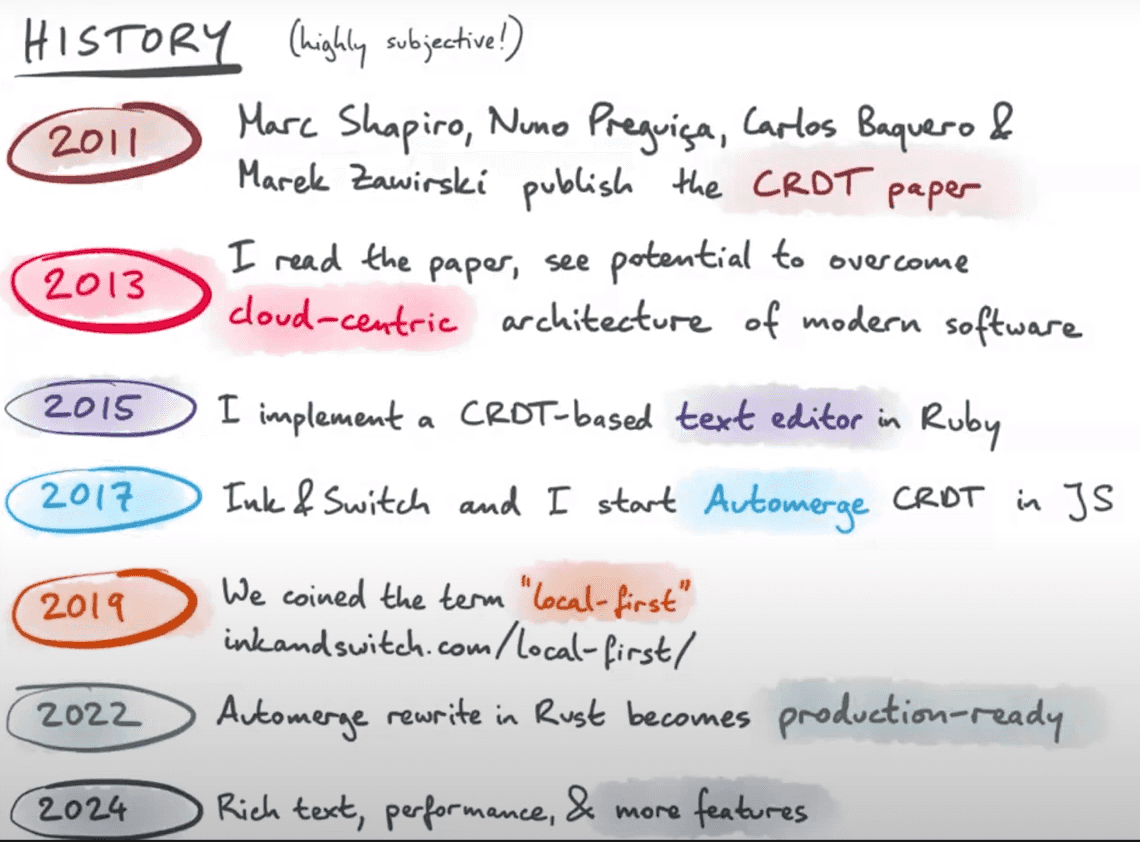 HISTORY (highly subjective!)
2011 Marc Shapiro, Nuno Preguiça, Carlos Baquero &
Marek Zawirski publish the CRDT paper
2013 I read the paper, see potential to overcome
cloud-centric architecture of modern software
2015 I implement a CRDT-based text editor in Ruby
2017 Ink & Switch and I start Automerge CRDT in JS
2019 We coined the term "local-first"
inkandswitch.com/local-first/
2022 Automerge rewrite in Rust becomes production-ready
2024 Rich text, performance, & more features